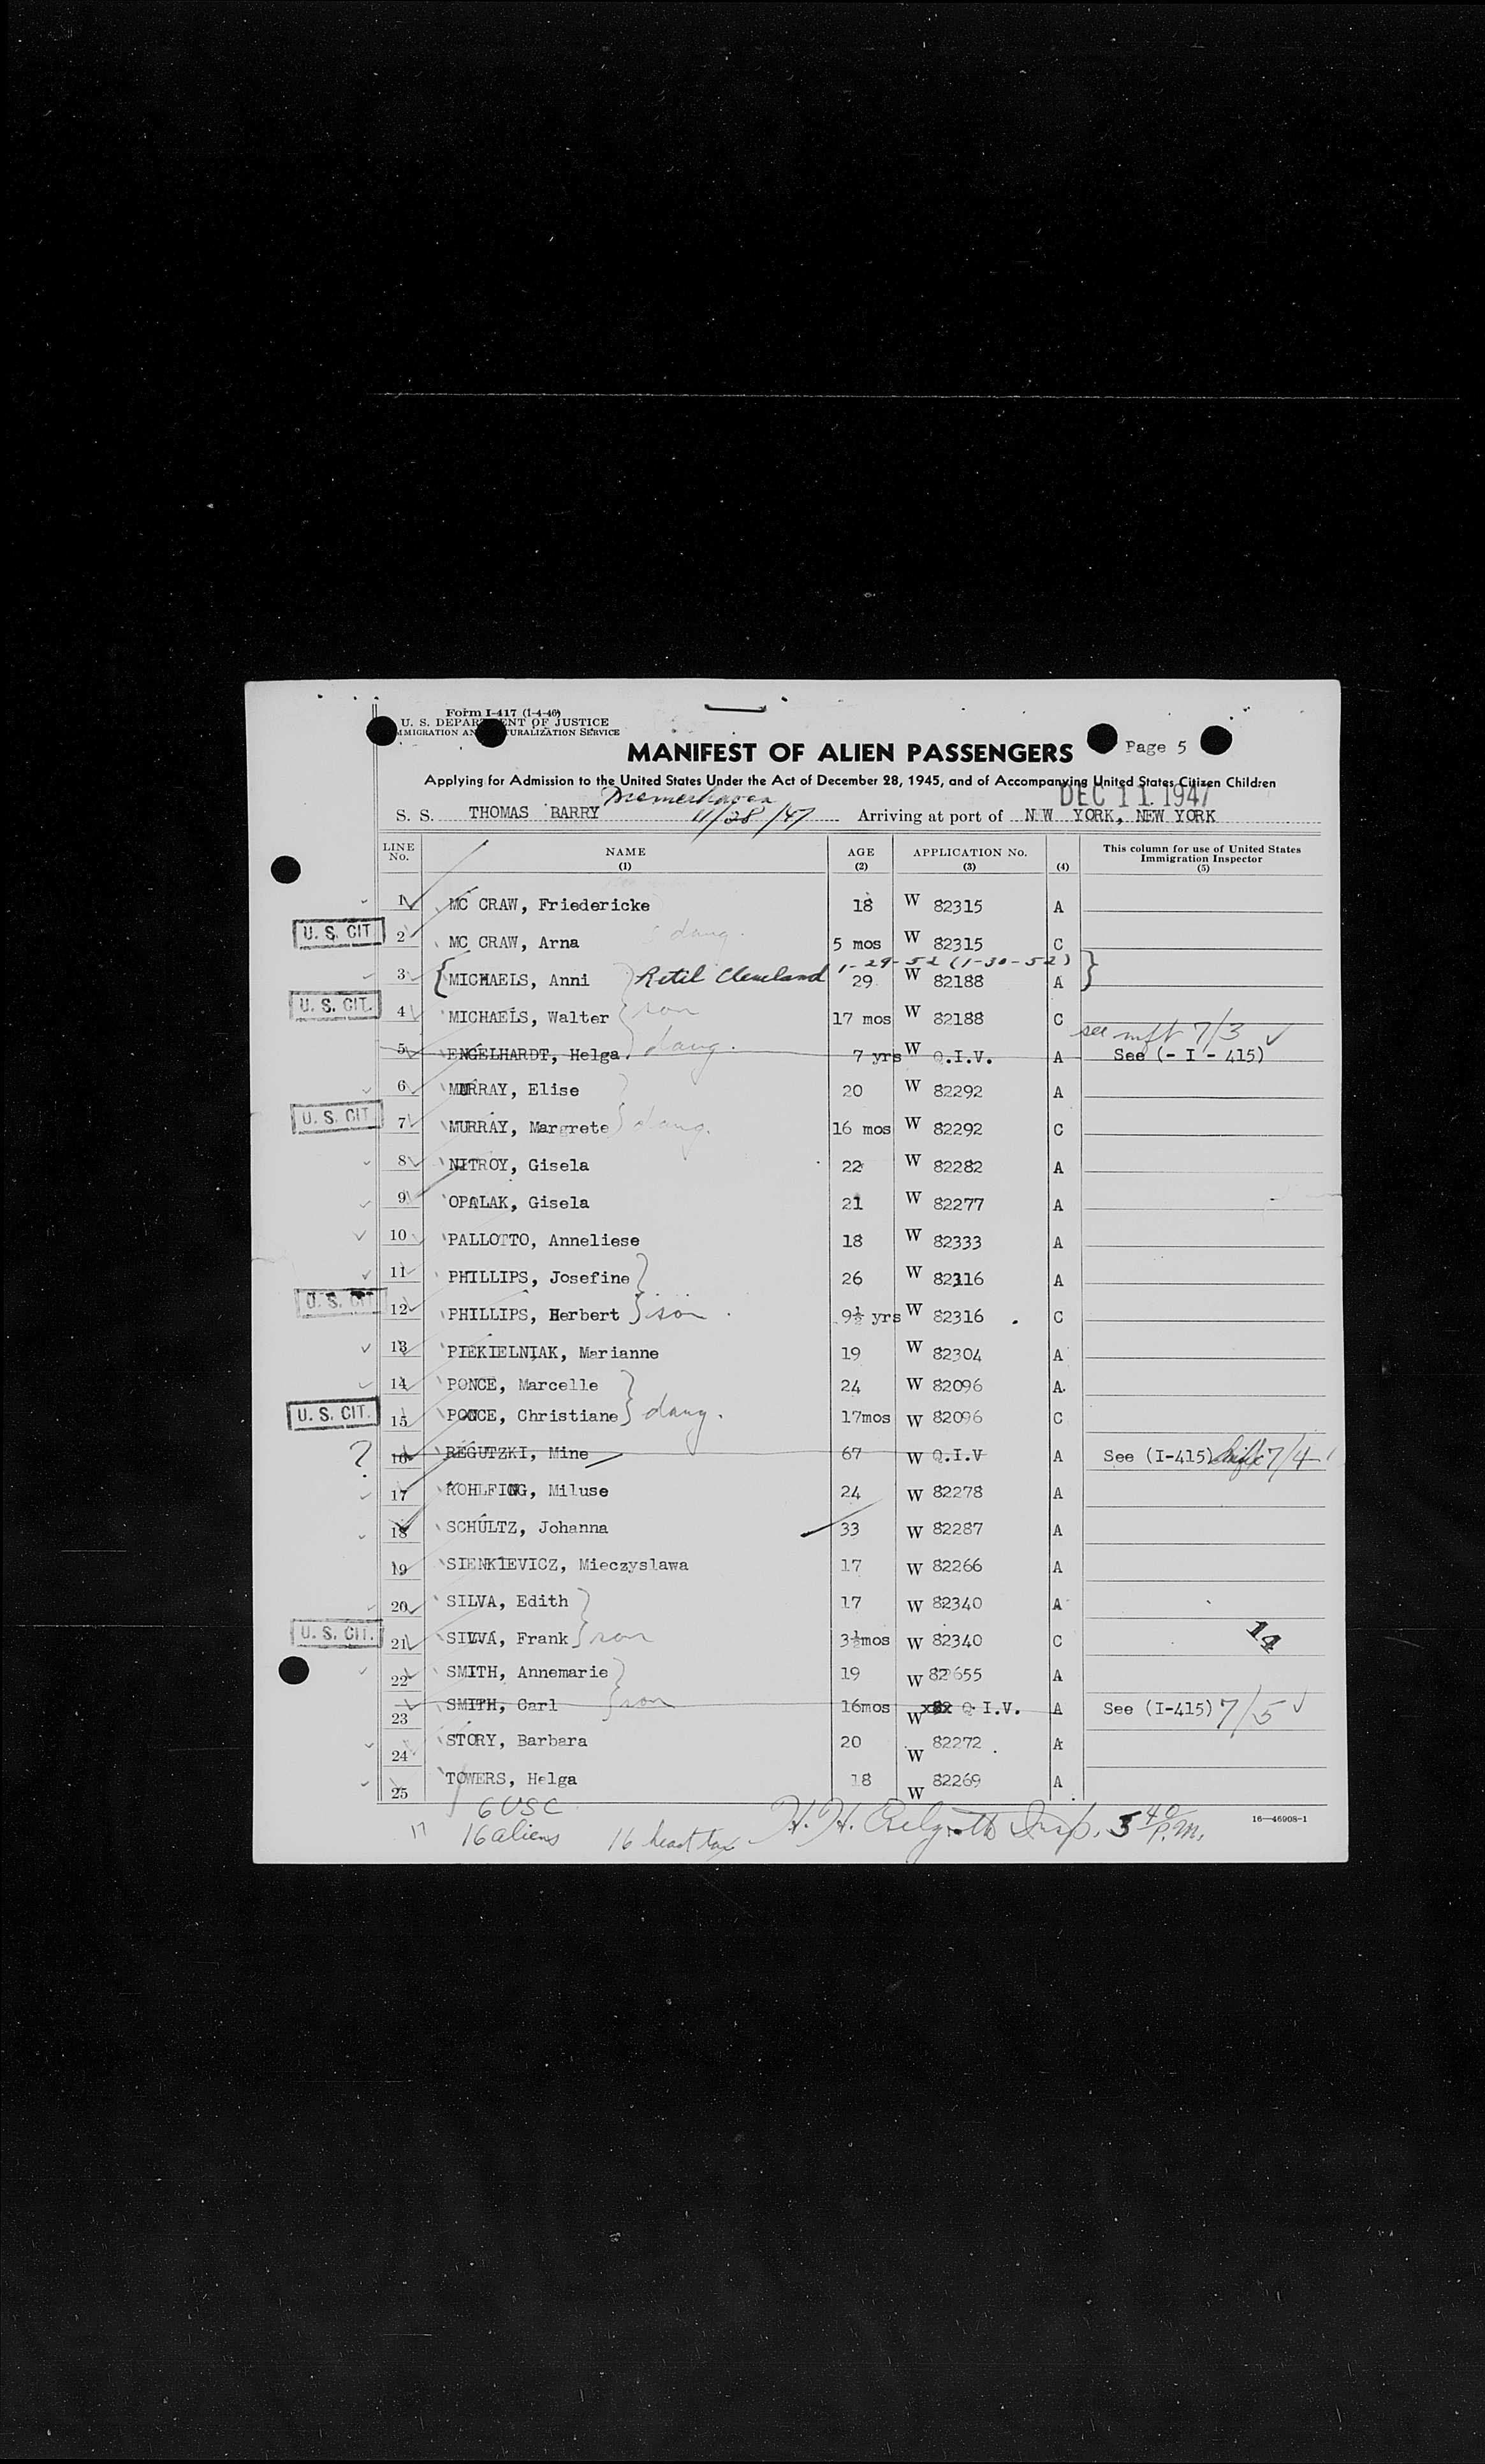 Form I-417 (1-4-46)
U. S. DEPARTMENT OF JUSTICE
IMMIGRATION AND NATURALIZATION SERVICE
MANIFEST OF ALIEN PASSENGERS Page 5
Applying for Admission to the United States Under the Act of December 28, 1945, and of Accompanying United States Citizen Children
Bremerhaven DEC 11 1947
S. S. THOMAS BARRY 11/28/47 Arriving at port of NEW YORK, NEW YORK
LINE No. NAME (1) AGE (2) APPLICATION No. (3) (4) This column for use of United States Immigration Inspector (5)
1 MC CRAW, Friedericke 18 W 82315 A
U. S. CIT. 2 MC CRAW, Arna daug. 5 mos W 82315 C
1-29-52 (1-30-52)
3 MICHAELS, Anni Retel Cleveland 29 W 82188 A
U. S. CIT. 4 MICHAELS, Walter son 17 mos W 82188 C
see mft 7/3
5 ENGELHARDT, Helga daug. 7 yrs W Q.I.V. A See (- I - 415)
6 MURRAY, Elise 20 W 82292 A
U. S. CIT. 7 MURRAY, Margrete daug. 16 mos W 82292 C
8 NITROY, Gisela 22 W 82282 A
9 OPALAK, Gisela 21 W 82277 A
10 PALLOTTO, Anneliese 18 W 82333 A
11 PHILLIPS, Josefine 26 W 82316 A
U. S. CIT 12 PHILLIPS, Herbert son 9½ yrs W 82316 C
13 PIEKIELNIAK, Marianne 19 W 82304 A
14 PONCE, Marcelle 24 W 82096 A
U. S. CIT. 15 PONCE, Christiane daug. 17mos W 82096 C
? 16 REGUTZKI, Mine 67 W Q.I.V A See (I-415) 7/4
17 ROHLFING, Miluse 24 W 82278 A
18 SCHULTZ, Johanna 33 W 82287 A
19 SIENKIEVICZ, Mieczyslawa 17 W 82266 A
20 SILVA, Edith 17 W 82340 A
U. S. CIT. 21 SILVA, Frank son 3½mos W 82340 C 14
22 SMITH, Annemarie 19 W 82655 A
23 SMITH, Carl son 16mos W Q.I.V. A See (I-415) 7/5
24 STORY, Barbara 20 W 82272 A
25 TOWERS, Helga 18 W 82269 A
6 USC
17 16 aliens 16 head tax H. H. Insp. 5 40 P.M. 16—46908-1